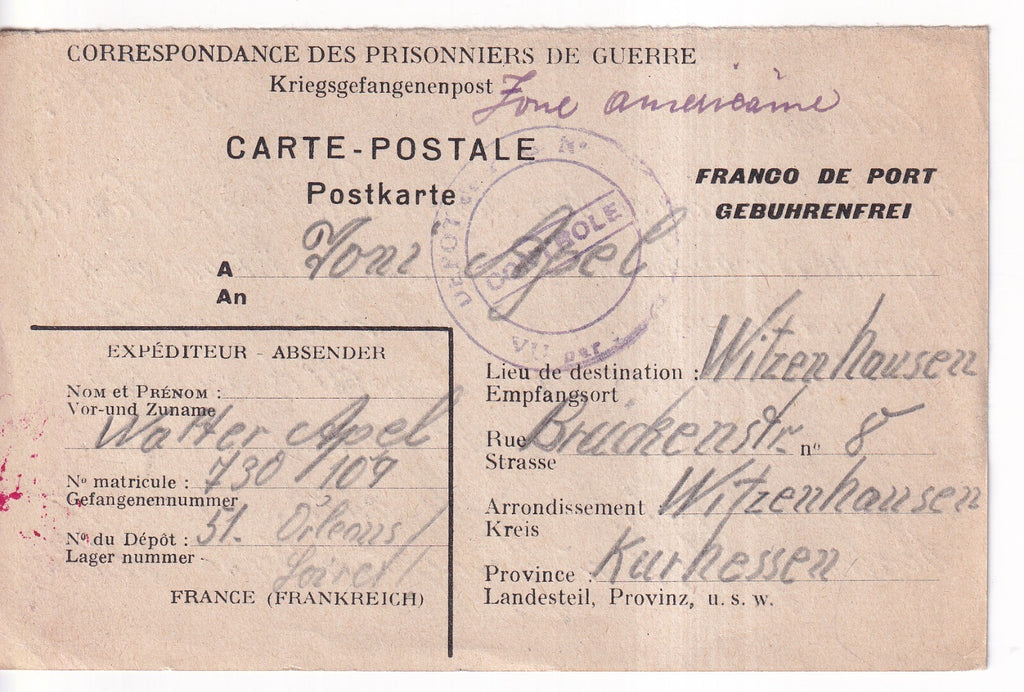 CORRESPONDANCE DES PRISONNIERS DE GUERRE
Kriegsgefangenenpost
Zone américaine
CARTE-POSTALE
Postkarte
FRANCO DE PORT
GEBUHRENFREI
DEPOT
CONTROLE
VU par
A Toni Apel
An
EXPÉDITEUR - ABSENDER
NOM et PRÉNOM :
Vor-und Zuname
Walter Apel
Nº matricule : 730/109
Gefangenennummer
Nº du Dépôt : 51. Orleans/
Lager nummer - Loiret/
FRANCE (FRANKREICH)
Lieu de destination : Witzenhausen
Empfangsort
Rue Brückenstr. nº 8
Strasse
Arrondissement Witzenhausen
Kreis
Province : Kurhessen
Landesteil, Provinz, u. s. w.